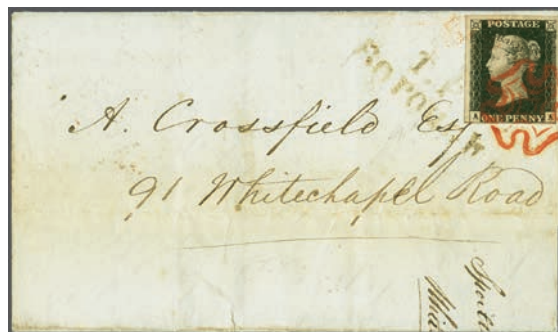 POSTAGE
A ONE PENNY A
A. Crossfield Esq
91 Whitechapel Road